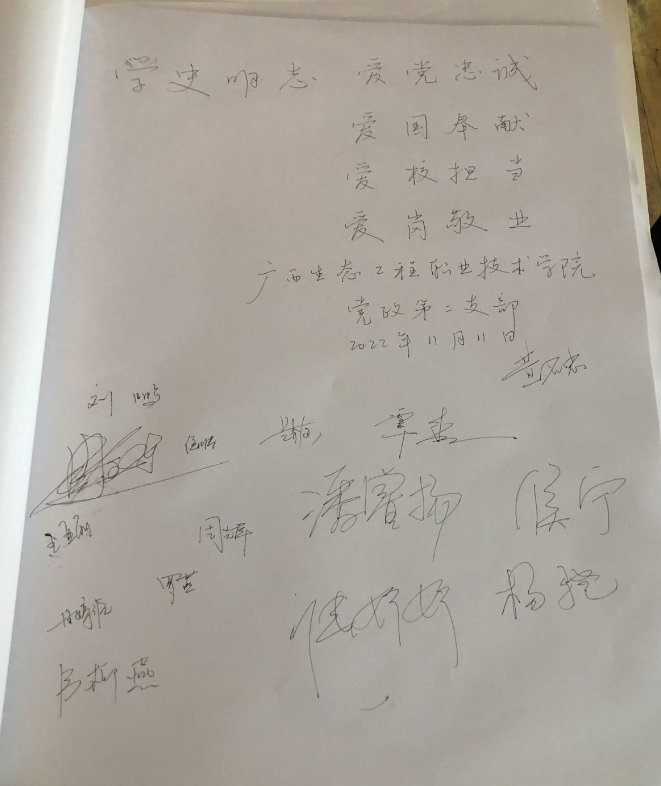 学史明志 爱党忠诚
爱国奉献
爱校担当
爱岗敬业
广西生态工程职业技术学院
党政第二支部
2022年11月11日
刘鹏
覃杰
周辉
潘睿扬 侯宁
罗兰
杨艳
韦柳燕